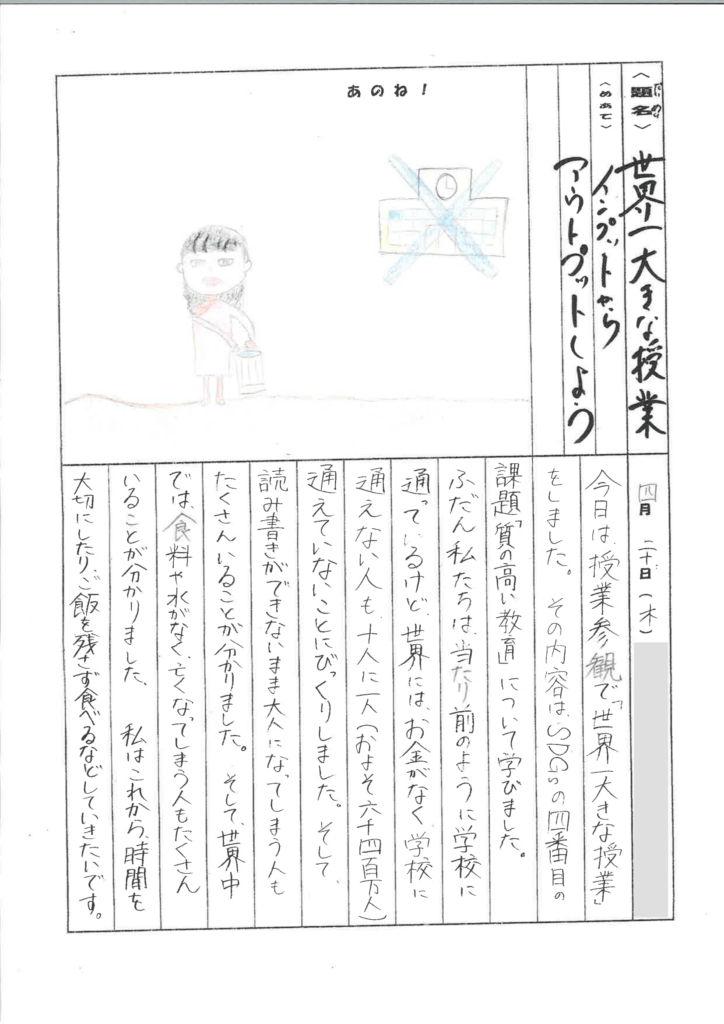 〈題名〉世界一大きな授業
〈めあて〉インプットから
アウトプットしよう
あのね！
四月二十日（木）
今日は、授業参観で「世界一大きな授業」
をしました。その内容は、SDGsの四番目の
課題「質の高い教育」について学びました。
ふだん私たちは、当たり前のように学校に
通っているけど、世界には、お金がなく、学校に
通えない人も、十人に一人（およそ六千四百万人）
通えていないことにびっくりしました。そして、
読み書きができないまま大人になってしまう人も
たくさんいることが分かりました。そして、世界中
では、食料や水がなく、亡くなってしまう人もたくさん
いることが分かりました。私はこれから、時間を
大切にしたり、ご飯を残さず食べるなどしていきたいです。